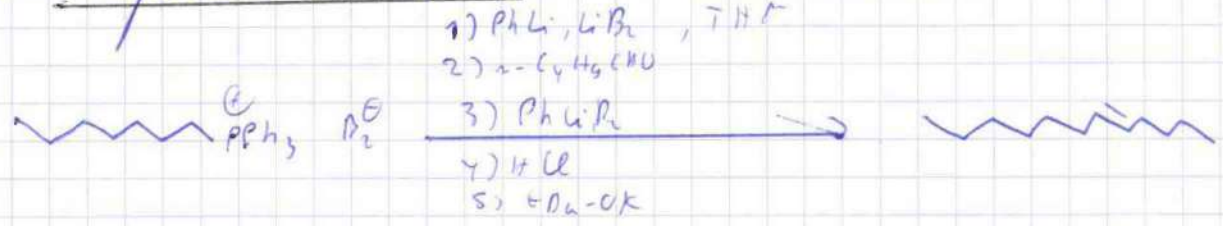 1) PhLi, LiBr, THF
2) n-C4H9CHO
⊕
PPh3 Br⊖
3) PhLi
4) HCl
5) tBu-OK